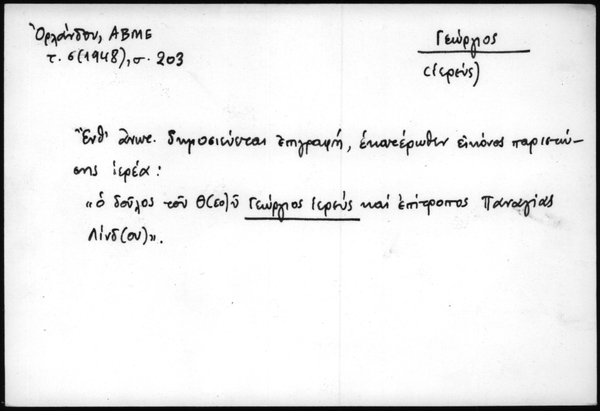 Ὀρλάνδου, ΑΒΜΕ
τ. ς (1948), σ. 203
Γεώργιος
(ἱερεύς)
Ἔνθ' ἄνωτ. δημοσιεύεται ἐπιγραφή, ἑκατέρωθεν εἰκόνος παριστώ-
σης ἱερέα:
«ὁ δοῦλος τοῦ Θ(εο)ῦ Γεώργιος ἱερεὺς καὶ ἐπίτροπος Παναγίας
Λίνδ(ου)».